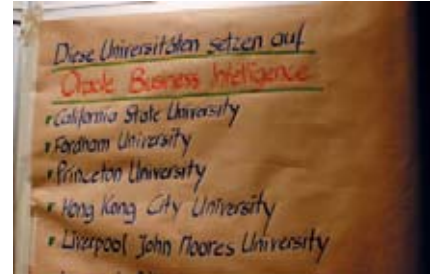 Diese Universitäten setzen auf
Oracle Business Intelligence
California State University
Fordham University
Princeton University
Hong Kong City University
Liverpool John Moores University